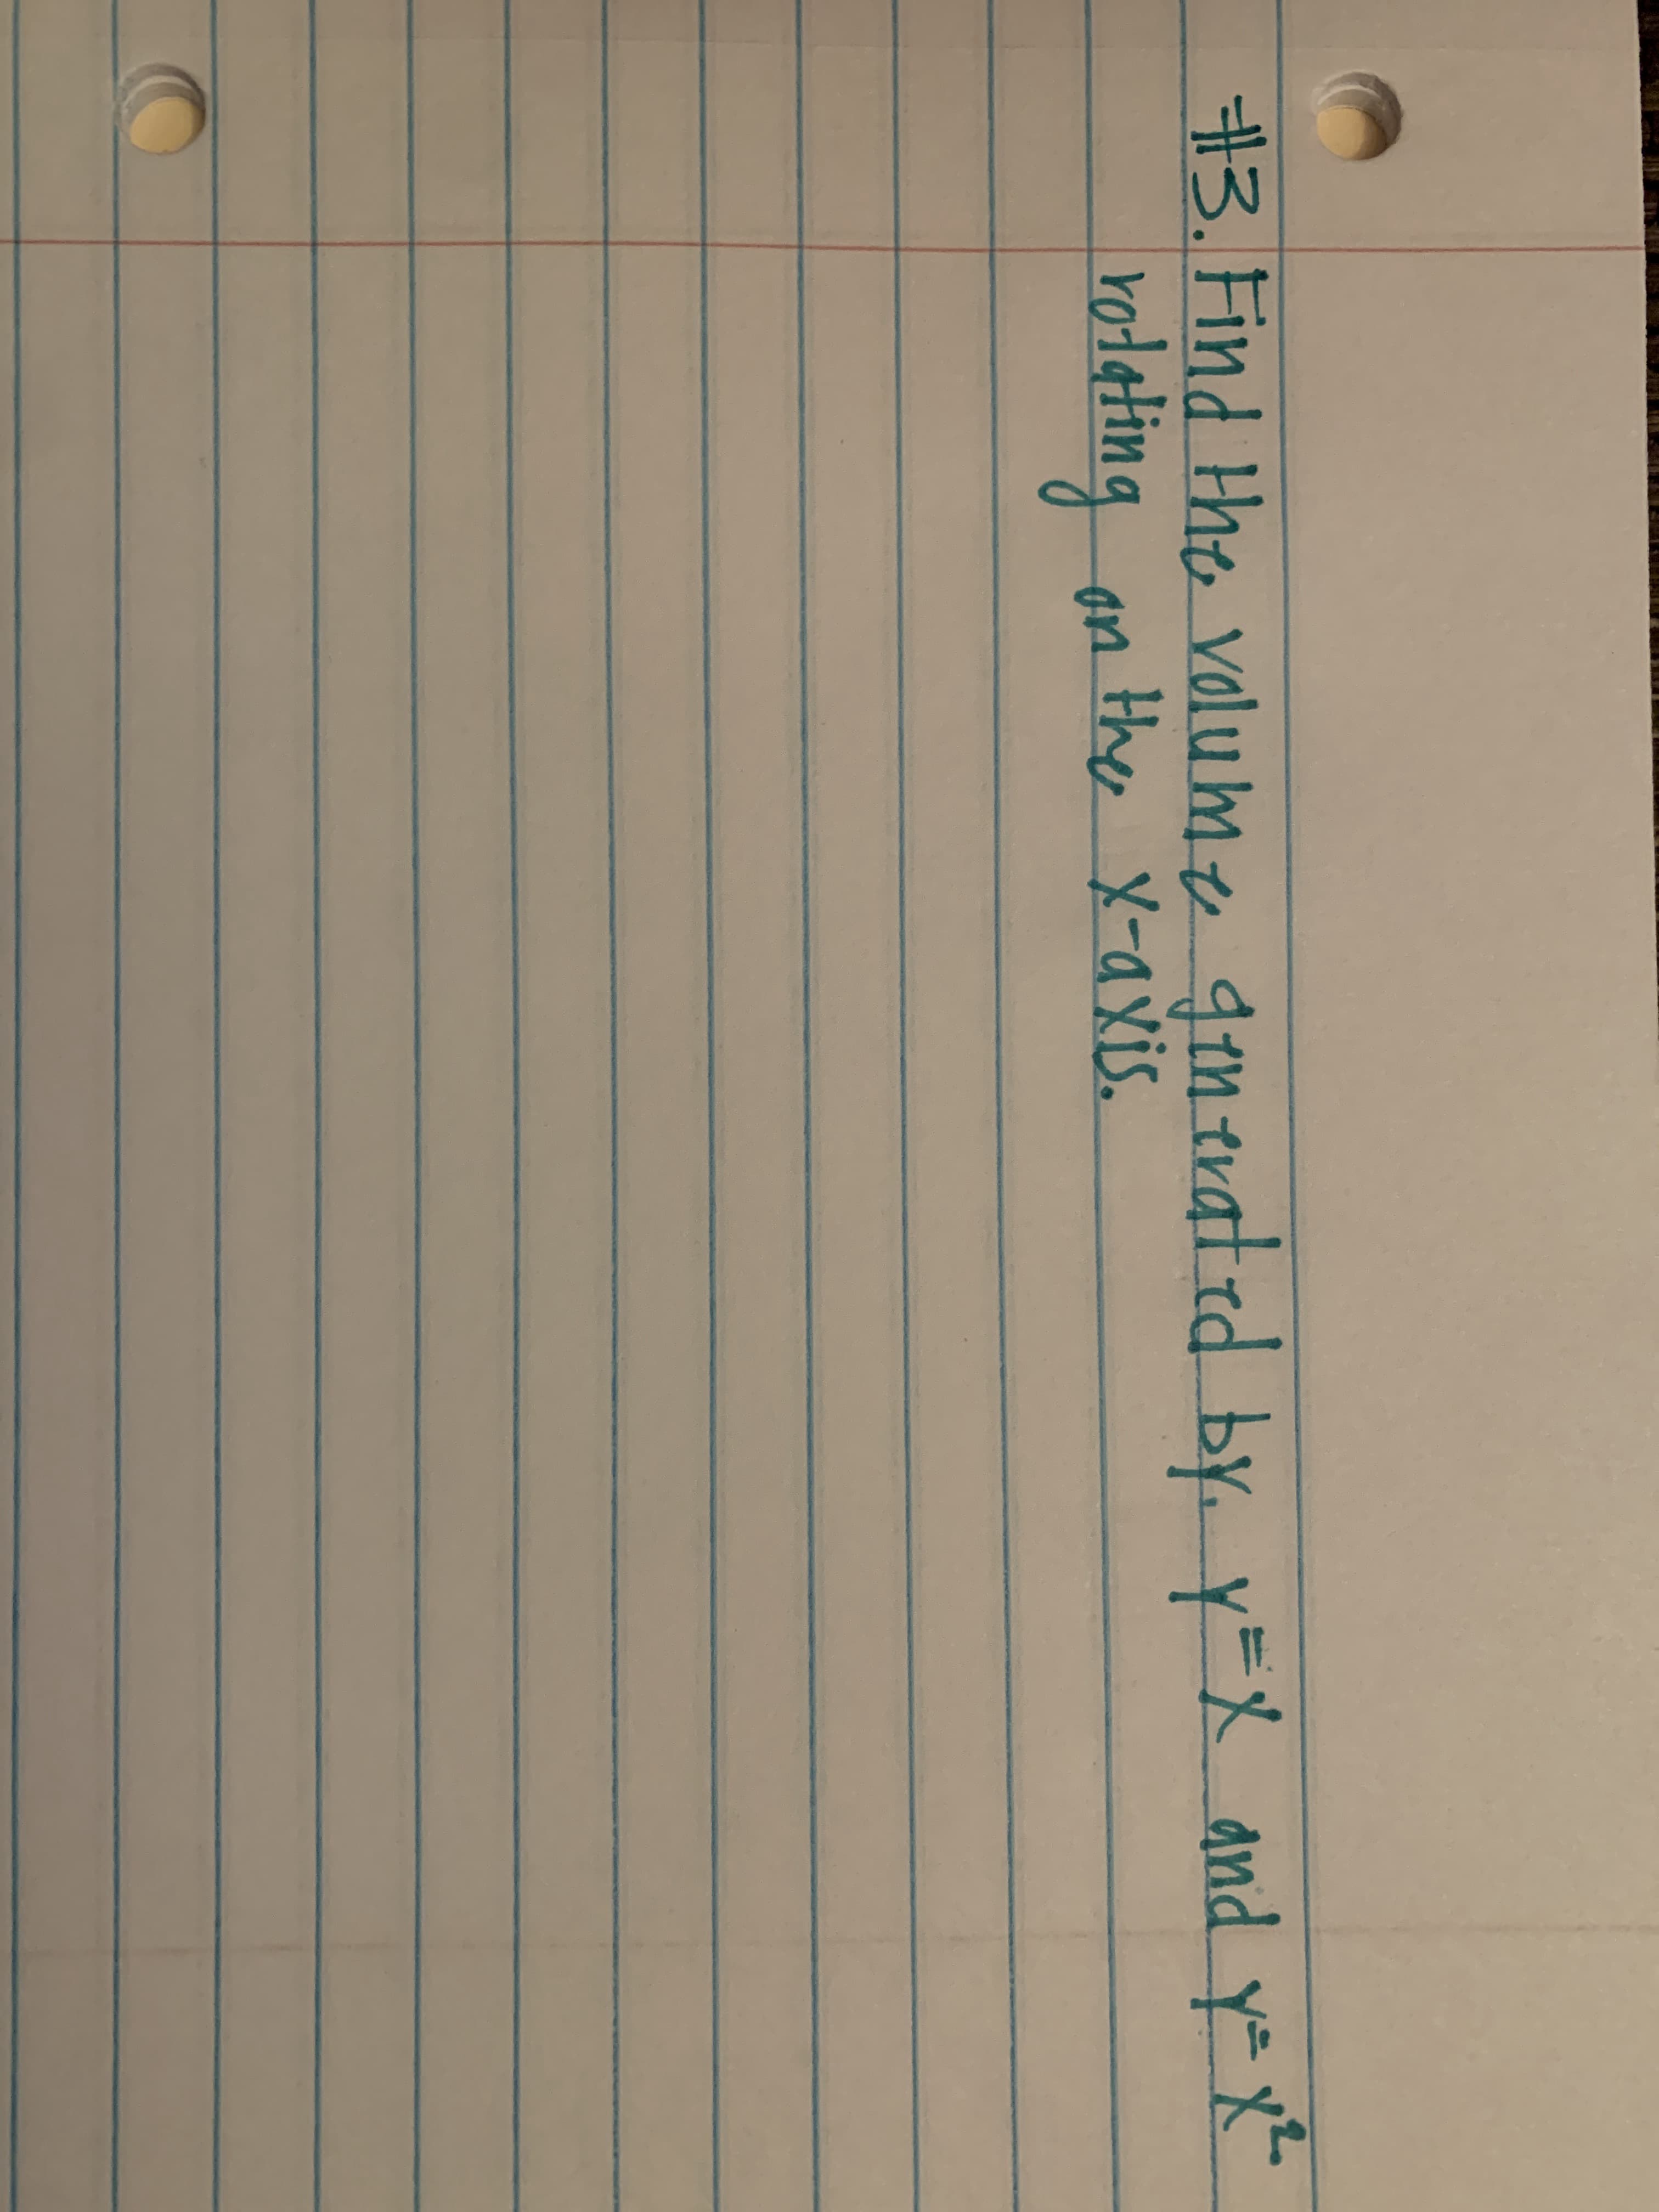 #3. Find the volume generated by. y=x and y=x²
rotating on the x-axis.